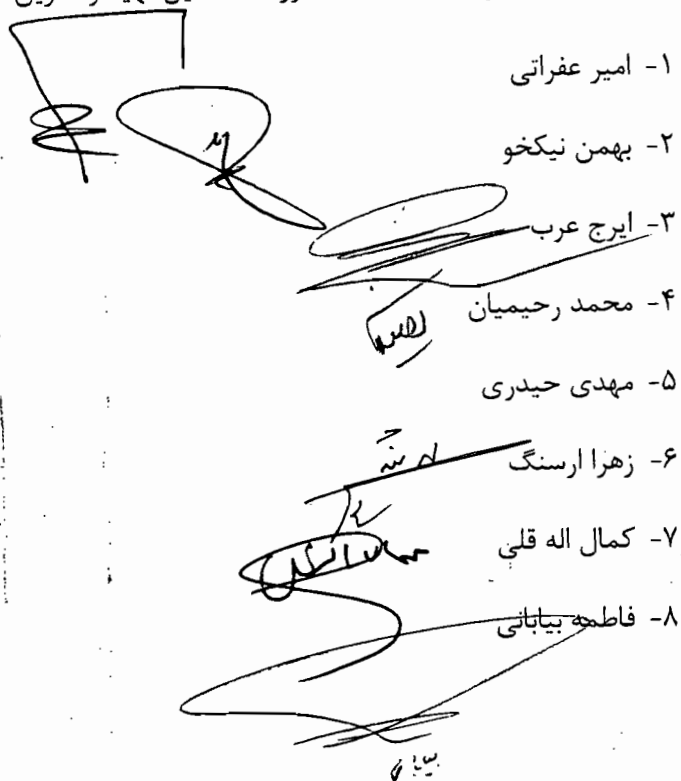 ۱- امیر عفراتی
۲- بهمن نیکخو
۳- ایرج عرب
۴- محمد رحیمیان
۵- مهدی حیدری
۶- زهرا ارسنگ
۷- کمال اله قلی
۸- فاطمه بیابانی